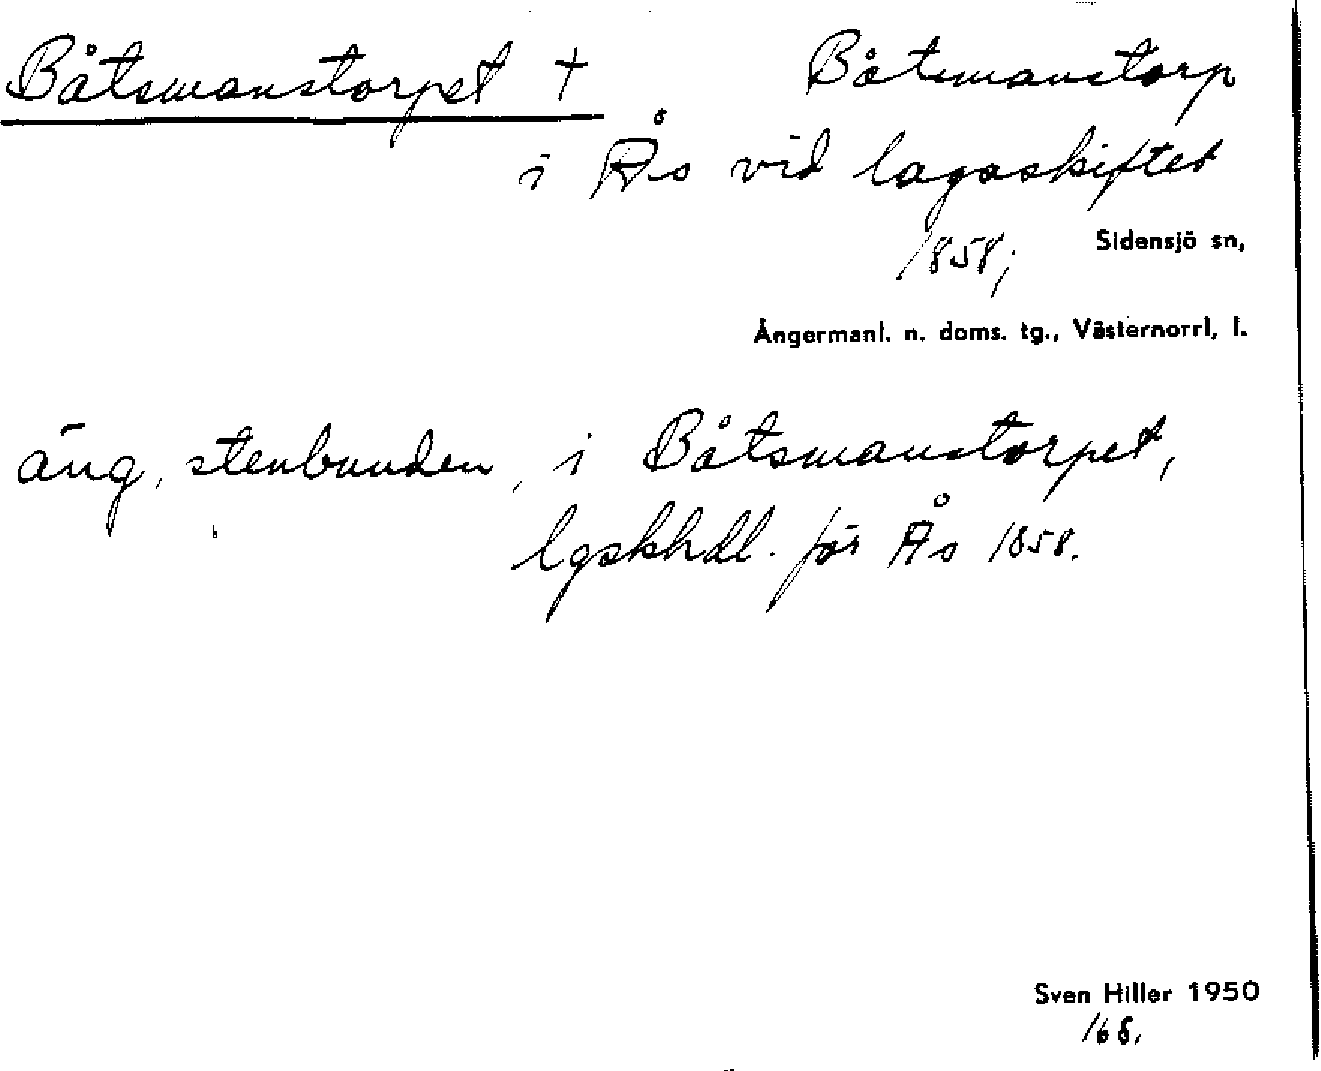 Båtsmanstorpet † Båtsmanstorp
i Ås vid lagaskiftet
1858;
Sidensjö sn,
Ångermanl. n. doms. tg., Västernorrl. l.
äng, stenbunden, i Båtsmanstorpet,
lgskhdl. för Ås 1858.
Sven Hiller 1950
168.